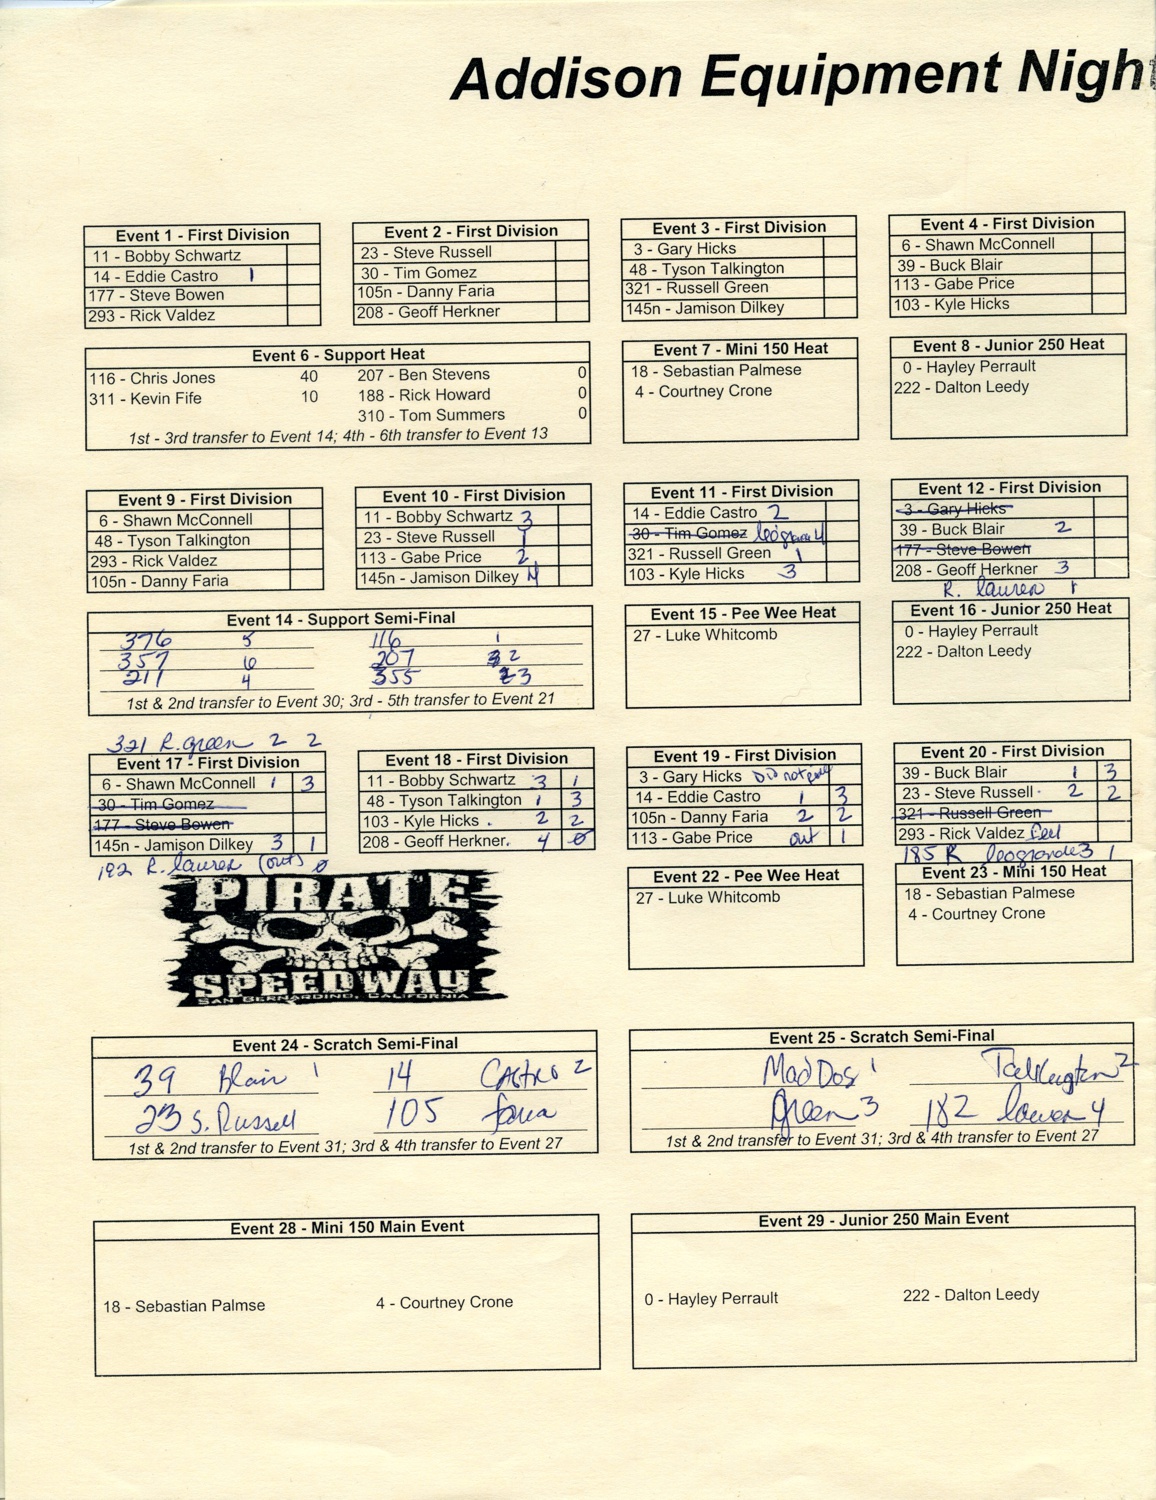 Addison Equipment Nigh
Event 1 - First Division
11 - Bobby Schwartz
14 - Eddie Castro 1
177 - Steve Bowen
293 - Rick Valdez
Event 2 - First Division
23 - Steve Russell
30 - Tim Gomez
105n - Danny Faria
208 - Geoff Herkner
Event 3 - First Division
3 - Gary Hicks
48 - Tyson Talkington
321 - Russell Green
145n - Jamison Dilkey
Event 4 - First Division
6 - Shawn McConnell
39 - Buck Blair
113 - Gabe Price
103 - Kyle Hicks
Event 6 - Support Heat
116 - Chris Jones 40 207 - Ben Stevens 0
311 - Kevin Fife 10 188 - Rick Howard 0
310 - Tom Summers 0
1st - 3rd transfer to Event 14; 4th - 6th transfer to Event 13
Event 7 - Mini 150 Heat
18 - Sebastian Palmese
4 - Courtney Crone
Event 8 - Junior 250 Heat
0 - Hayley Perrault
222 - Dalton Leedy
Event 9 - First Division
6 - Shawn McConnell
48 - Tyson Talkington
293 - Rick Valdez
105n - Danny Faria
Event 10 - First Division
11 - Bobby Schwartz 3
23 - Steve Russell 1
113 - Gabe Price 2
145n - Jamison Dilkey 4
Event 11 - First Division
14 - Eddie Castro 2
30 - Tim Gomez 4
321 - Russell Green 1
103 - Kyle Hicks 3
Event 12 - First Division
3 - Gary Hicks
39 - Buck Blair 2
177 - Steve Bowen
208 - Geoff Herkner 3
R. lauren 1
Event 14 - Support Semi-Final
376 5 116 1
357 6 207 2
211 4 355 3
1st & 2nd transfer to Event 30; 3rd - 5th transfer to Event 21
Event 15 - Pee Wee Heat
27 - Luke Whitcomb
Event 16 - Junior 250 Heat
0 - Hayley Perrault
222 - Dalton Leedy
321 R. green 2 2
Event 17 - First Division
6 - Shawn McConnell 1 3
30 - Tim Gomez
177 - Steve Bowen
145n - Jamison Dilkey 3 1
192 R. lauren (out) 0
Event 18 - First Division
11 - Bobby Schwartz 3 1
48 - Tyson Talkington 1 3
103 - Kyle Hicks 2 2
208 - Geoff Herkner 4 0
Event 19 - First Division
3 - Gary Hicks Did not
14 - Eddie Castro 1 3
105n - Danny Faria 2 2
113 - Gabe Price out 1
Event 20 - First Division
39 - Buck Blair 1 3
23 - Steve Russell 2 2
321 - Russell Green
293 - Rick Valdez
185 R leogrande 3 1
PIRATE
SPEEDWAY
SAN BERNARDINO, CALIFORNIA
Event 22 - Pee Wee Heat
27 - Luke Whitcomb
Event 23 - Mini 150 Heat
18 - Sebastian Palmese
4 - Courtney Crone
Event 24 - Scratch Semi-Final
39 Blair 1 14 CAstro 2
23 S. Russell 105 faria
1st & 2nd transfer to Event 31; 3rd & 4th transfer to Event 27
Event 25 - Scratch Semi-Final
Mad Dog 1 Talkington 2
green 3 182 lauren 4
1st & 2nd transfer to Event 31; 3rd & 4th transfer to Event 27
Event 28 - Mini 150 Main Event
18 - Sebastian Palmse 4 - Courtney Crone
Event 29 - Junior 250 Main Event
0 - Hayley Perrault 222 - Dalton Leedy